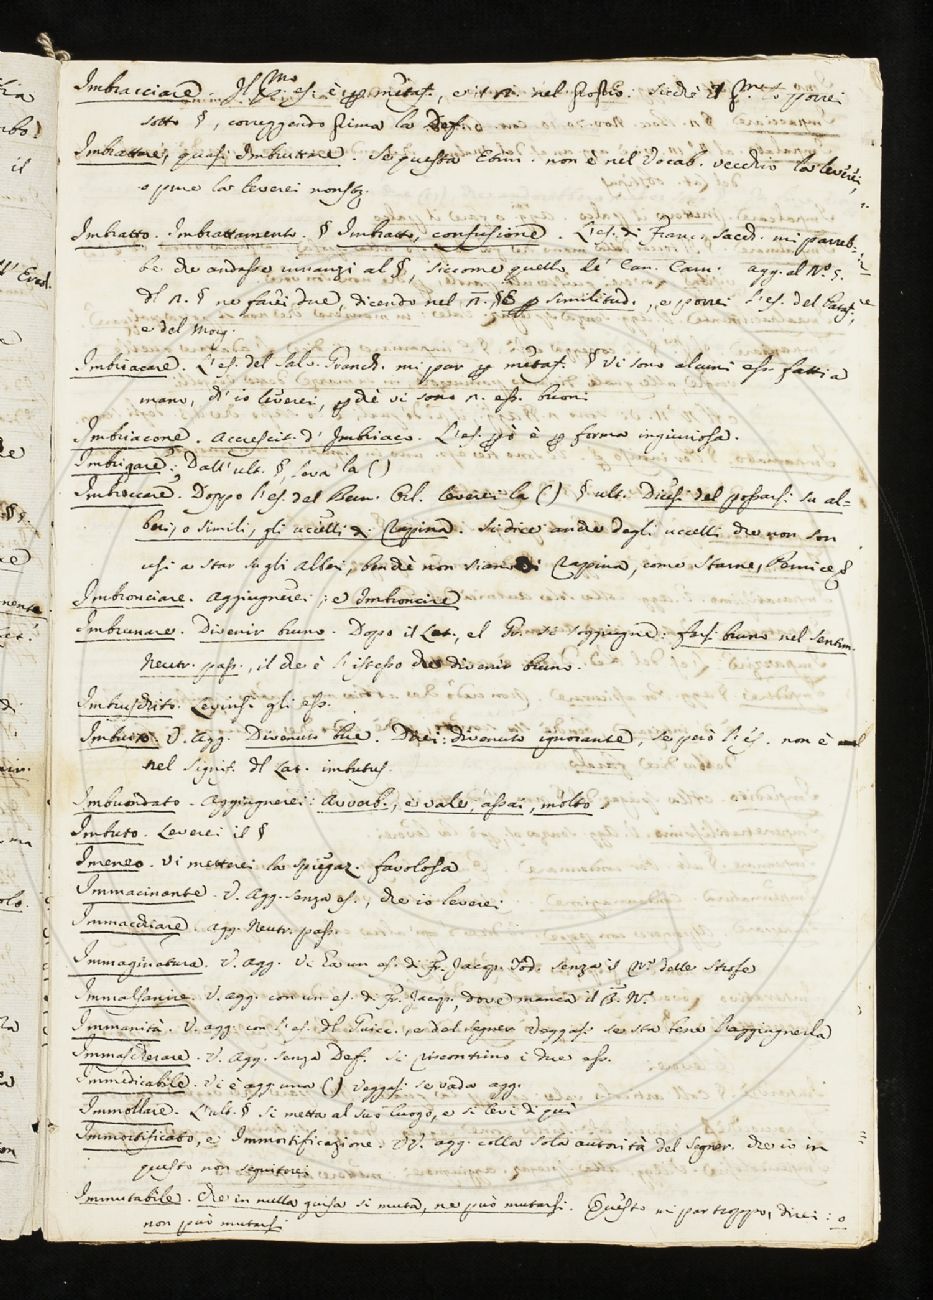 Imbracciare. Il p.mo es. è p metaf., e il n. nel proprio. Sicchè il p.mo lo porrei
sotto §, correggendo prima la Def.
Imbrattare, quasi Imbruttare. Se questa Etim. non è nel Vocab. vecchio la leverei,
o pure la leverei
Imbratto. Imbrattamento. § Imbratto, confusione. L'es. di Franc. Sacch. mi parreb-
be che andasse innanzi al §, siccome quello de' Can. Carn. agg. al N.° 5.
Del n. § ne farei due, dicendo nel n. § E p similitud., e porrei l'es. del Pataf.,
e del Morg.
Imbriacare. L'es. del Salv. Granch. mi par p metaf. § Vi sono alcuni ess. fatti a
mano, ch' io leverei, pchè vi sono n. ess. buoni
Imbriacone. Accrescit. d' Imbriaco. L'es. però è p forma ingiuriosa.
Imbrigare: Dall' ult. §, leva la ()
Imbroccare. Doppo l'es. del Buon. leverei la () § ult. Dicesi del posarsi su al-
beri, o simili, gli uccelli di Rapina. Si dice anche degli uccelli che non son
usi a star su gli Alberi, benchè non siano di Rapina, come Starne, Pernice
Imbronciare. Aggiugnerei: e Imbroncire
Imbrunare. Divenir bruno. Dopo il Lat., el Gr. si soggiugne: farsi bruno nel sentim.
Neutr. pass., il che è l'istesso che divenir bruno.
Imbruschito. Levinsi gli ess.
Imbuire. V. Agg. Divenuto bue. Direi: divenuto ignorante, se però l'es. non è
nel signif. del Lat. imbutus.
Imbuondato. Aggiugnerei: Avverb., e vale, assai, molto
Imbuto. Leverei il §
Imeneo. Vi metterei la spiegaz. favolosa
Immacinante. V. Agg. senza es., che io leverei
Immacchiare agg. Neutr. pass.
Immaginatura. V. Agg. Vi ha un es. di Fr. Jacop. Tod. senza il N.° delle Strofe
Immalsanire. V. agg. con un es. di Fr. Jacop., dove manca il N.°
Immanità. V. agg. con l'es. del Guicc., e del Segner. Veggasi se sta bene l'aggiugnerla
Immascherare. V. Agg. senza Def. Si riscontrino i due ess.
Immedicabile. Vi è agg. una () veggasi se vada agg.
Immollare. L'ult. § si metta al suo luogo, e si levi di quì
Immortificato, e Immortificazione. VV. agg. colla sola autorità del Segner. che io in
questo non seguiterei
Immutabile. Che in nulla guisa si muta, ne può mutarsi. Questo mi par troppo, direi: o
non può mutarsi.